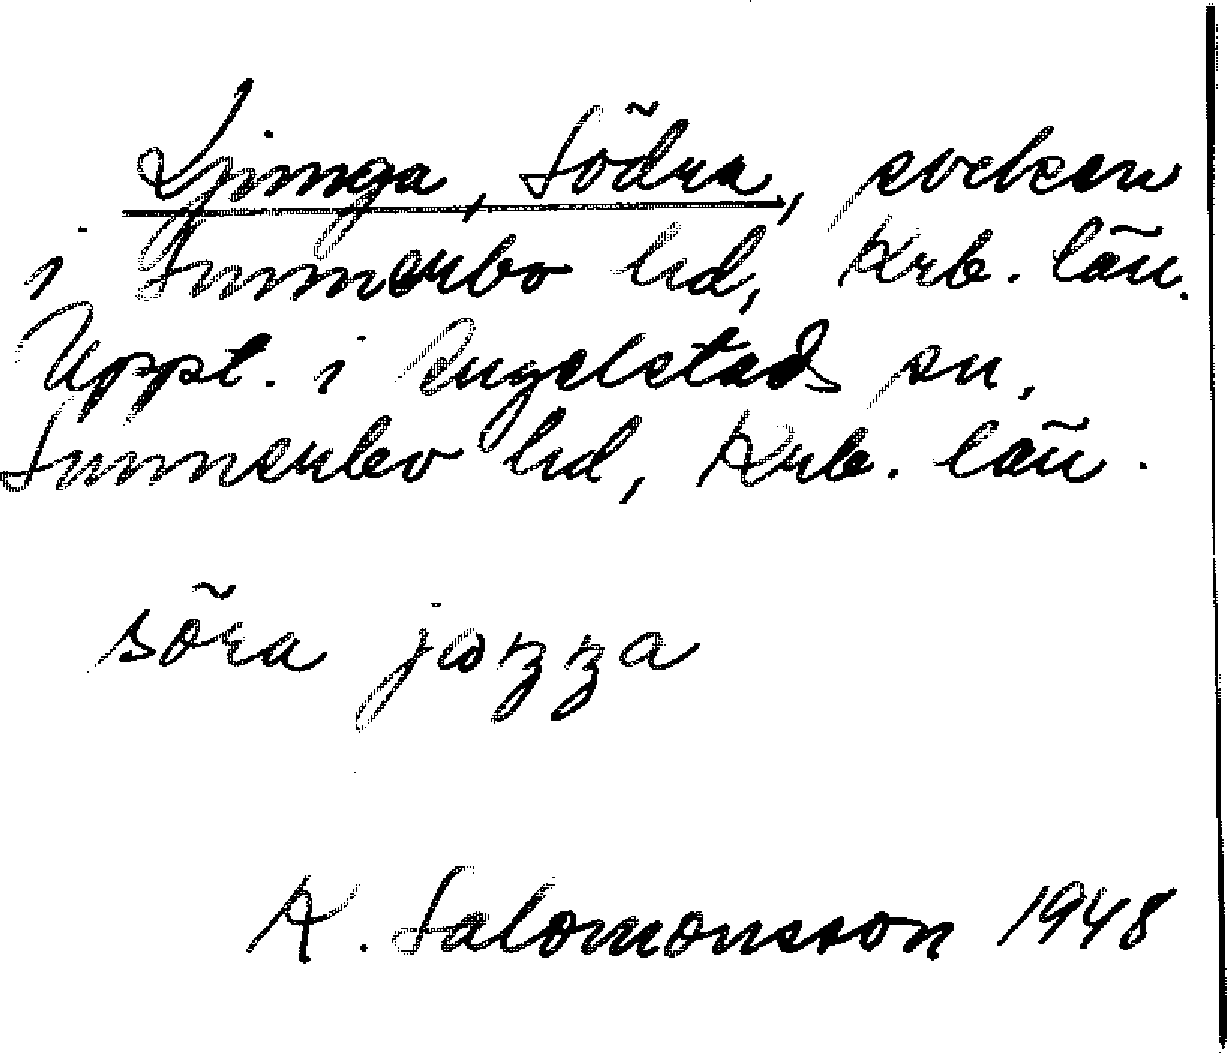 Ljunga, Södra, socken
i Sunnerbo hd, Krb. län.
Uppt. i Angelstads sn,
Sunnerbo hd, Krb. län.
söra
K. Salomonsson 1948